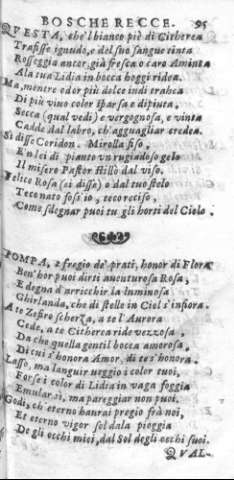 BOSCHERECCE. 95
QVESTA, che'l bianco piè di Citherea
Trafisse ignudo, e del suo sangue tinta
Rosseggia ancor, già fresca o caro Aminta
A la tua Lidia in bocca hoggi ridea.
Ma, mentre odor più dolce indi trahea
Di più viuo color sparsa e dipinta,
Bocca (qual vedi) e vergognosa, e vinta
Cadde dal labro, ch'agguagliar credea.
Sì disse Coridon. Mirolla fiso,
E'n lei di pianto vn rugiadoso gelo
Il misero Pastor stillò dal viso,
Felice Rosa (ei disse) o dal tuo stelo
Teco nato foss'io, teco reciso,
Come sdegnar puoi tu gli horti del Cielo.
POMPA, e fregio de' prati, honor di Flora
Ben' hor puoi dirti auenturosa Rosa,
E degna d'arricchir la luminosa
Ghirlanda, che di stelle in Ciel s'infiora.
A te Zefiro scherza, a te l'Aurora
Cede, a te Citherea ride vezzosa,
Da che quella gentil bocca amorosa,
Di cui s'honora Amor, di te s'honora.
Lasso, ma languir veggio i color tuoi,
Forse i color di Lidia in vaga foggia
Emular sì, ma pareggiar non puoi.
Godi, ch'eterno haurai pregio frà noi,
Et eterno vigor sol da la pioggia
De gli occhi miei, dal Sol de gli occhi suoi.
QVAL-